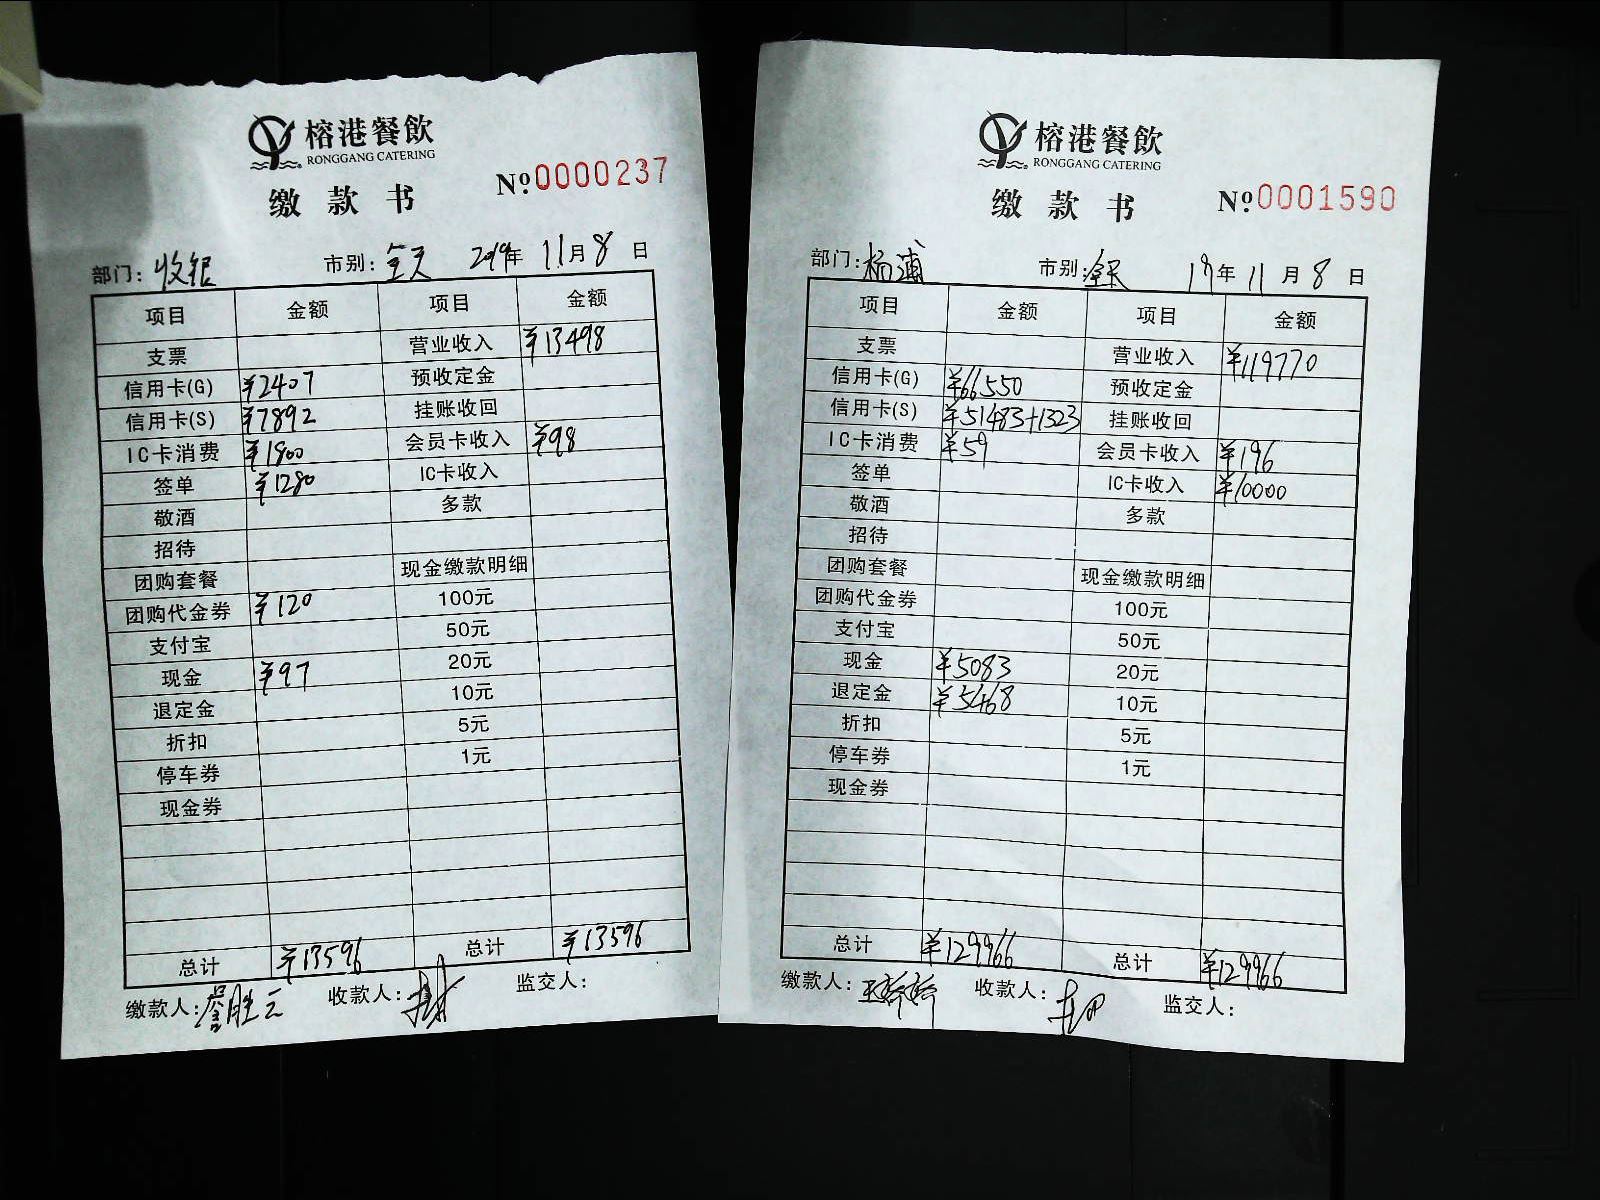 榕港餐飲
RONGGANG CATERING
缴款书
№0000237
部门：收银 市别：全天 2019年 11月8日
项目 金额 项目 金额
支票 营业收入 ¥13498
信用卡(G) ¥2407 预收定金
信用卡(S) ¥7892 挂账收回
IC卡消费 ¥1800 会员卡收入 ¥98
签单 ¥1280 IC卡收入
敬酒 多款
招待
团购套餐 现金缴款明细
团购代金券 ¥120 100元
支付宝 50元
现金 ¥97 20元
退定金 10元
折扣 5元
停车券 1元
现金券
总计 ¥13596 总计 ¥13596
缴款人： 收款人： 监交人：
榕港餐飲
RONGGANG CATERING
缴款书
№0001590
部门：杨浦 市别： 19年 11月8日
项目 金额 项目 金额
支票 营业收入 ¥119770
信用卡(G) ¥66550 预收定金
信用卡(S) ¥51483+1323 挂账收回
IC卡消费 ¥59 会员卡收入 ¥196
签单 IC卡收入 ¥10000
敬酒 多款
招待
团购套餐 现金缴款明细
团购代金券 100元
支付宝 50元
现金 ¥5083 20元
退定金 ¥5468 10元
折扣 5元
停车券 1元
现金券
总计 ¥129966 总计 ¥129966
缴款人： 收款人： 监交人：